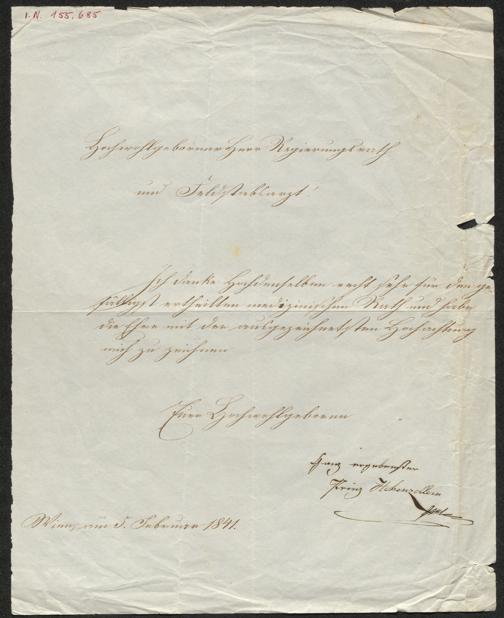 I.N. 155.685
Hochwohlgeborner Herr Regierungsrath
und Feldstabsarzt!
Ich danke Hochdenselben recht sehr für den ge-
fälligst ertheilten medizinischen Rath und habe
die Ehre mit der ausgezeichnetsten Hochachtung
mich zu zeichnen
Euer Hochwohlgeboren
ganz ergebenster
Prinz Hohenzollern
Wien, am 5. Februar 1841.